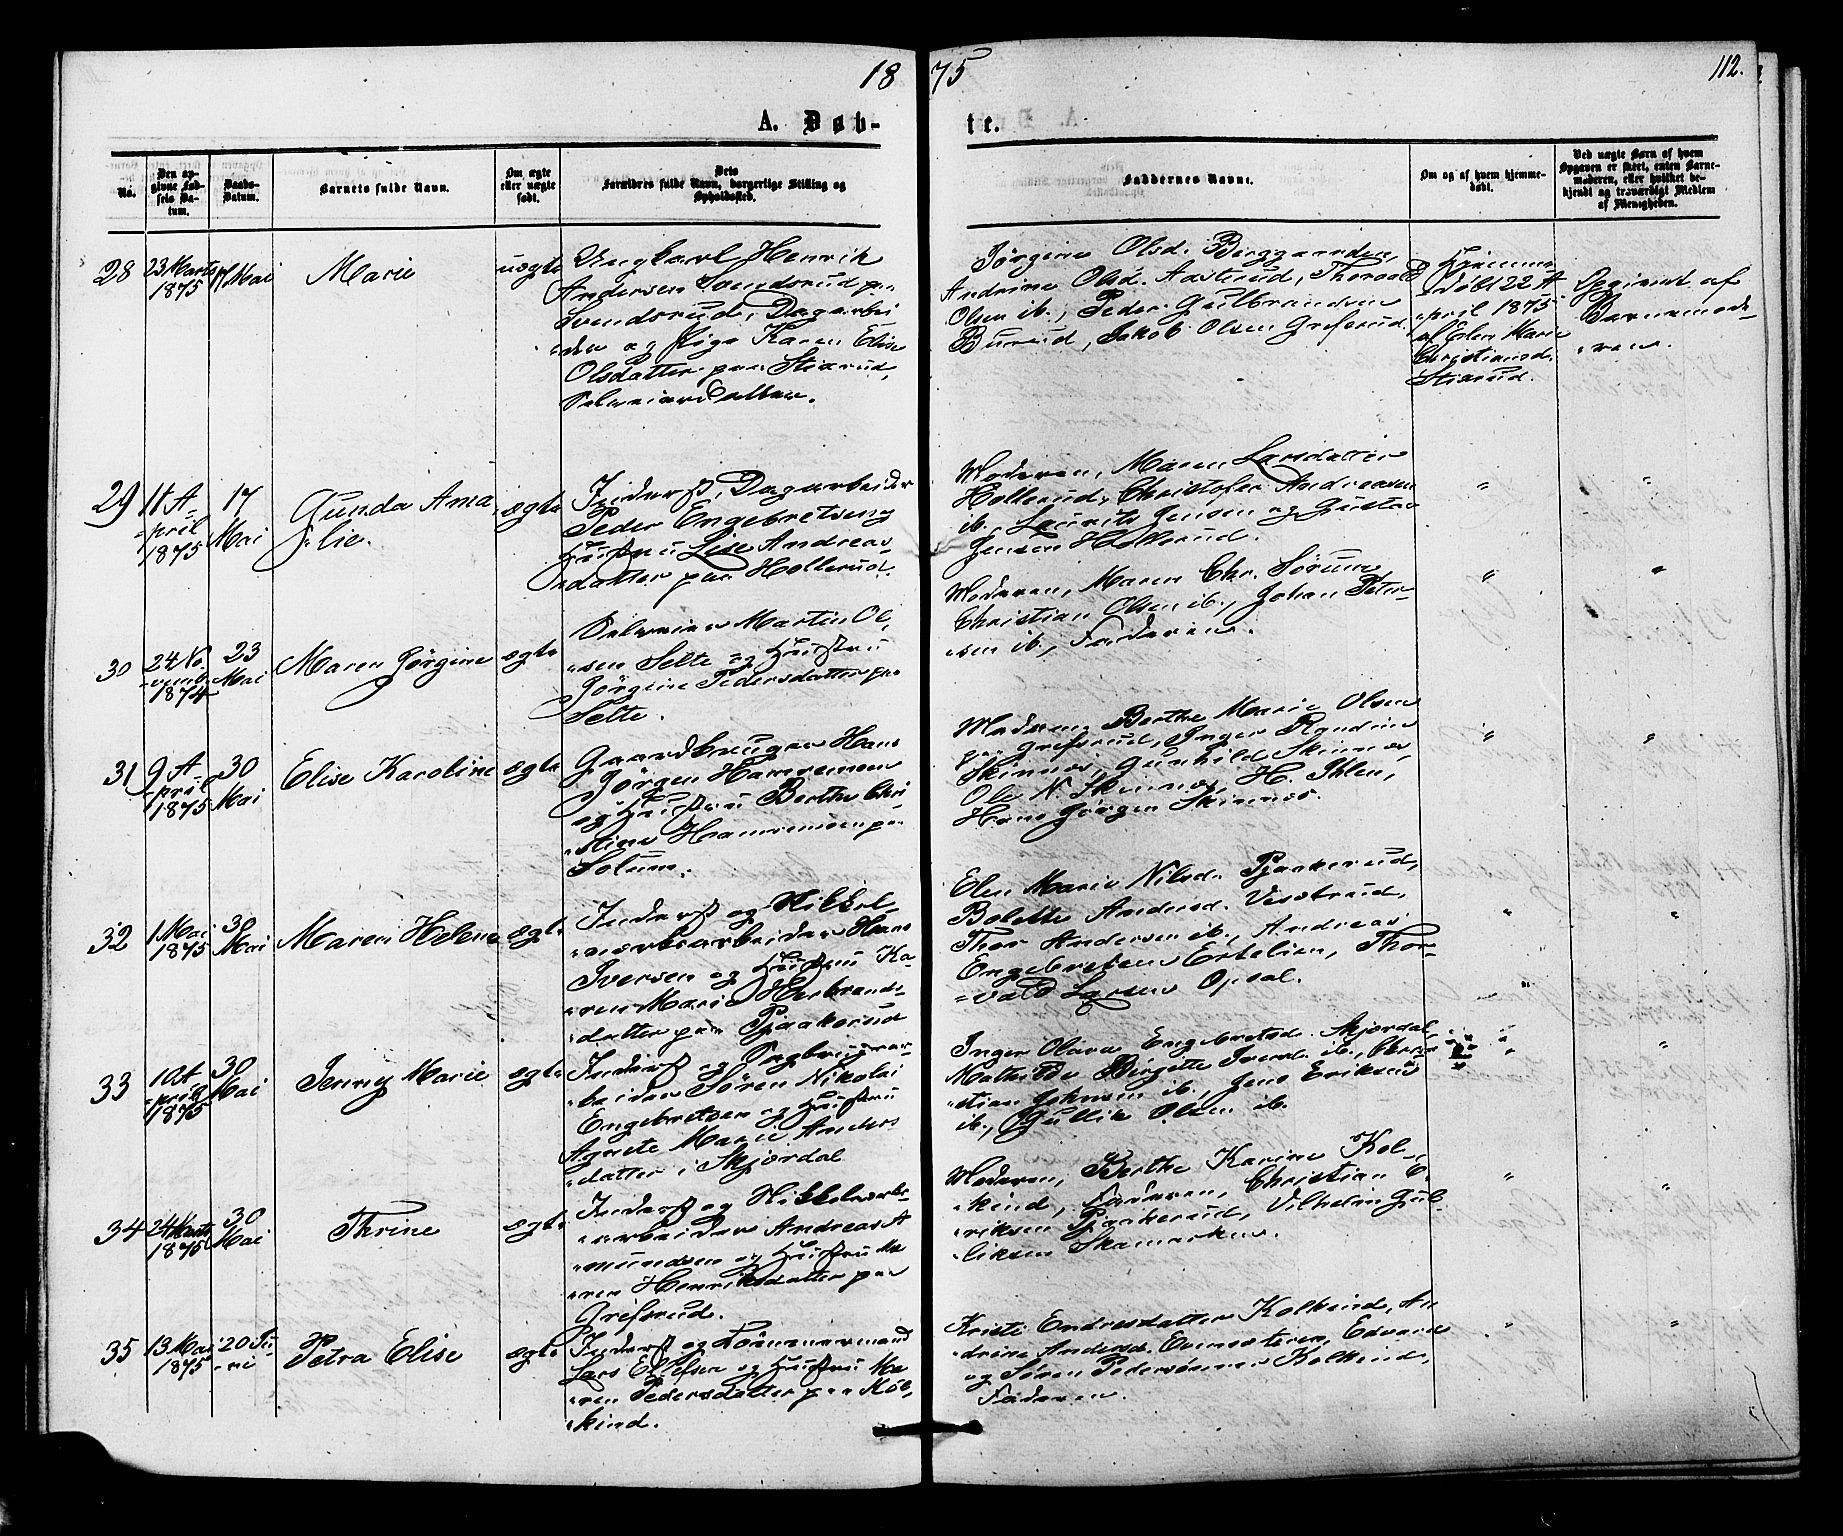 1875
112.
A. Døbte.
No.
Den opgivne Fødsels Datum.
Daabs-Datum.
Barnets fulde Navn.
Om ægte eller uægte født.
Dets Forældres fulde Navn, borgerlige Stilling og Opholdssted.
Faddernes Navne.
Om og af hvem hjemmedøbt.
Ved uægte Børn af hvem Opgaven er skeet, enten Barnemoderen, eller hvilket bekjendt og troværdigt Medlem af Menigheden.
28
23 Marts
1875
17 Mai
Marie
uægte
Ungkarl Henrik
Andersen Svendsrud paa
Svendsrud, Dagarbei
-der og Pige Karen Elise
Olsdatter paa Stixrud,
Selveierdatter.
Jørgine Olsd. Berggarden,
Andrine Olsd. Aastrud, Thorvald
Olsen ib., Peder Gulbrandsen
Burud, Jakob Olsen Grefsrud.
Hjemme-
døbt 22 A
-pril 1875
af Elen Marie
Christiansd.
Stixrud.
Opgivet af
Barnemode-
-ren.
29
18 A-
-pril
1875
17
Mai
Gunda Ama
-lie.
ægte
Inderst, Dagarbeider
Peder Engebretsen og
Hustru Lise Andreas-
-datter paa Hollerud.
Moderen, Maren Larsdatter
Hollerud, Christofer Andreasen
ib., Laurits Jensen og Gustav
Jensen Hollerud.
"
"
30
24 No-
-vemb.
1874
23
Mai
Maren Jørgine
ægte
Selveier Martin Ol-
-sen Selte og Hustru
Jørgine Pedersdatter paa
Selte.
Moderen, Maren Chr. Sørum,
Christian Olsen ib., Johan Peter-
-sen ib., Faderen.
"
"
31
9 A-
-pril
1875
30
Mai
Elise Karoline
ægte
Gaardbruger Hans
Jørgen Hansemoen
og Hustru Berthe Chri-
-stine Hansemoen paa
Solum.
Moderen, Berthe Marie Olsen
paa Grefsrud, Inger Randine
Skinnes, Gunhild Skinnes,
Ole N. Skinnes, H. Ihlen,
Hans Jørgen Skinnes.
"
"
32
1 Mai
1875
30
Mai
Maren Helene
ægte
Inderst og Nikkel-
-værksarbeider Hans
Iversen og Hustru Ka-
-ren Marie Herbrands-
-datter paa Pjaakerud
Elen Marie Nilsd. Pjaakerud,
Bolette Andersd. Vesstrud,
Thor Andersen ib., Andreas
Engebretsen Ertelien, Thor-
-vald Larsen Opsal.
"
"
33
10 A
-pril
1875
30
Mai
Jenny Marie
ægte
Inderst og Sagbrugsar-
-beider Søren Nikolai
Engebretsen og Hustru
Agnete Marie Anders
-datter i Skjørdal
Inger Olava Engebretsd. Skjørdal,
Mathilde Birgitte Iversd. ib., Chri-
-stian Johnsen ib., Jens Eriksen
ib., Gullik Olsen ib.
"
"
34
24 Marts
1875
30
Mai
Thrine
ægte
Inderst og Nikkelværks-
-arbeider Andreas A
-mundsen og Hustru Ma
-ren Henriksdatter paa
Grefsrud.
Moderen, Berthe Karine Kol-
-kind, Faderen, Christian E-
-riksen Pjaakerud, Vilhelm Gul-
-liksen Skamarken.
"
"
35
13 Mai
1875
20 Ju-
-ni
Petra Elise
ægte
Inderst og Tømmermand
Lars Ellefsen og Hustru Ma-
-ren Pedersdatter paa Kol-
-kind.
Kristi Endresdatter Kolkind, An
-drine Andersd. Evensteren, Edvard
og Søren Pedersønner Kolkind,
Faderen.
"
"